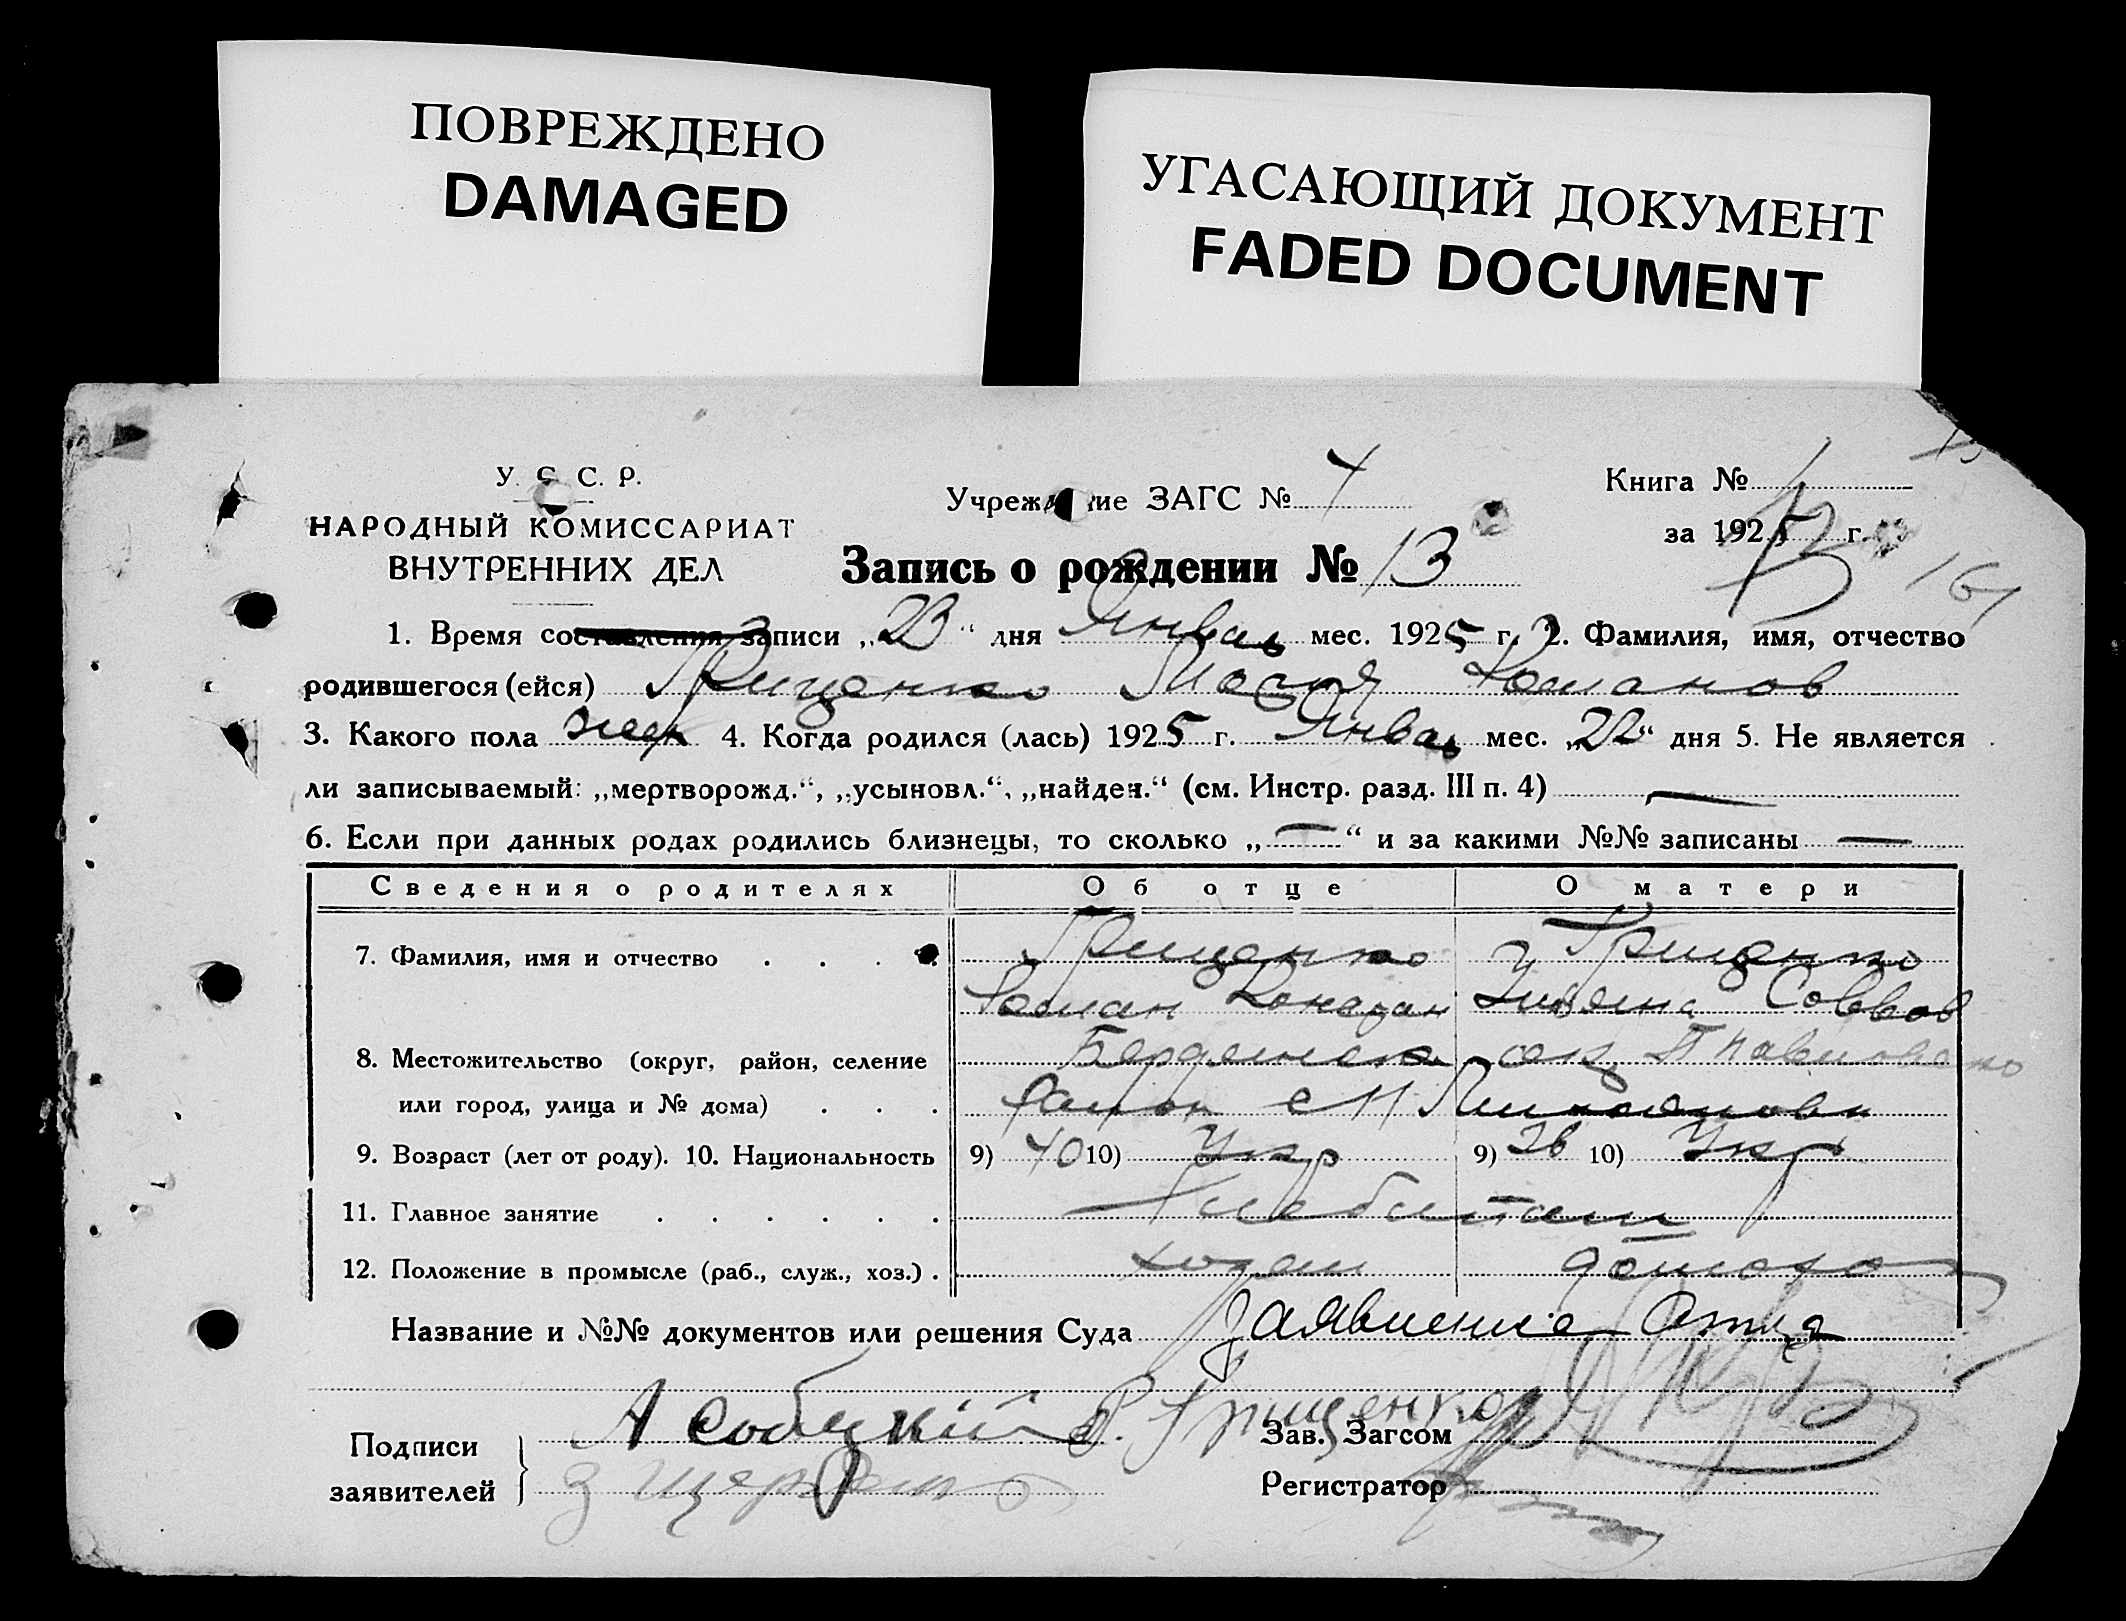 ПОВРЕЖДЕНО
DAMAGED
УГАСАЮЩИЙ ДОКУМЕНТ
FADED DOCUMENT
У. С. С. Р.
НАРОДНЫЙ КОМИССАРИАТ
ВНУТРЕННИХ ДЕЛ
Учреждение ЗАГС № 4
Книга № 1
за 1925 г.
Запись о рождении № 13
1. Время составления записи „23“ дня Январь мес. 1925 г. 2. Фамилия, имя, отчество
родившегося (ейся) Грищенко Мария Романов
3. Какого пола жен 4. Когда родился (лась) 1925 г. Январь мес. „22“ дня 5. Не является
ли записываемый: „мертворожд.“, „усыновл.“, „найден.“ (см. Инстр. разд. III п. 4) —
6. Если при данных родах родились близнецы, то сколько „—“ и за какими №№ записаны —
Сведения о родителях Об отце О матери
7. Фамилия, имя и отчество . . . . Грищенко Грищенко
Роман Савов
8. Местожительство (округ, район, селение Бердянск ок
или город, улица и № дома) . . . район с
9. Возраст (лет от роду). 10. Национальность 9) 40 10) Укр 9) 26 10) Укр
11. Главное занятие . . . . . . Хлебопаш
12. Положение в промысле (раб., служ., хоз.) . хозяин домохоз
Название и №№ документов или решения Суда Заявление отца
Подписи
заявителей
А Собуцкий Р. Грищенко
Зав. Загсом
Регистратор